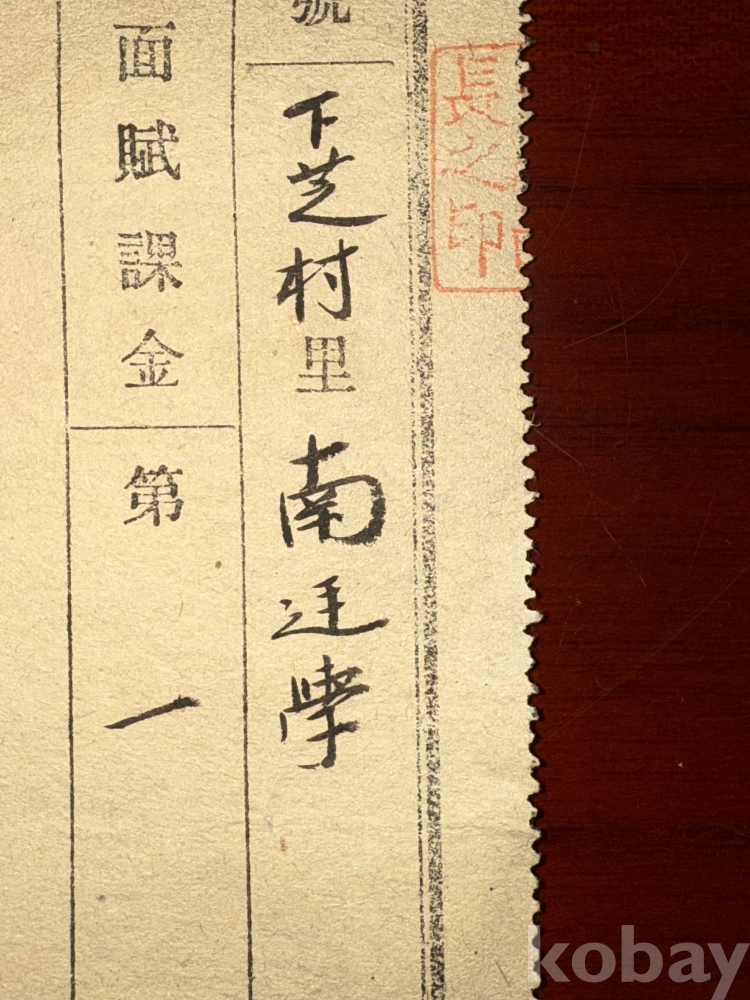 長之印
號
下芝村里 南廷學
面賦課金
第一
kobay